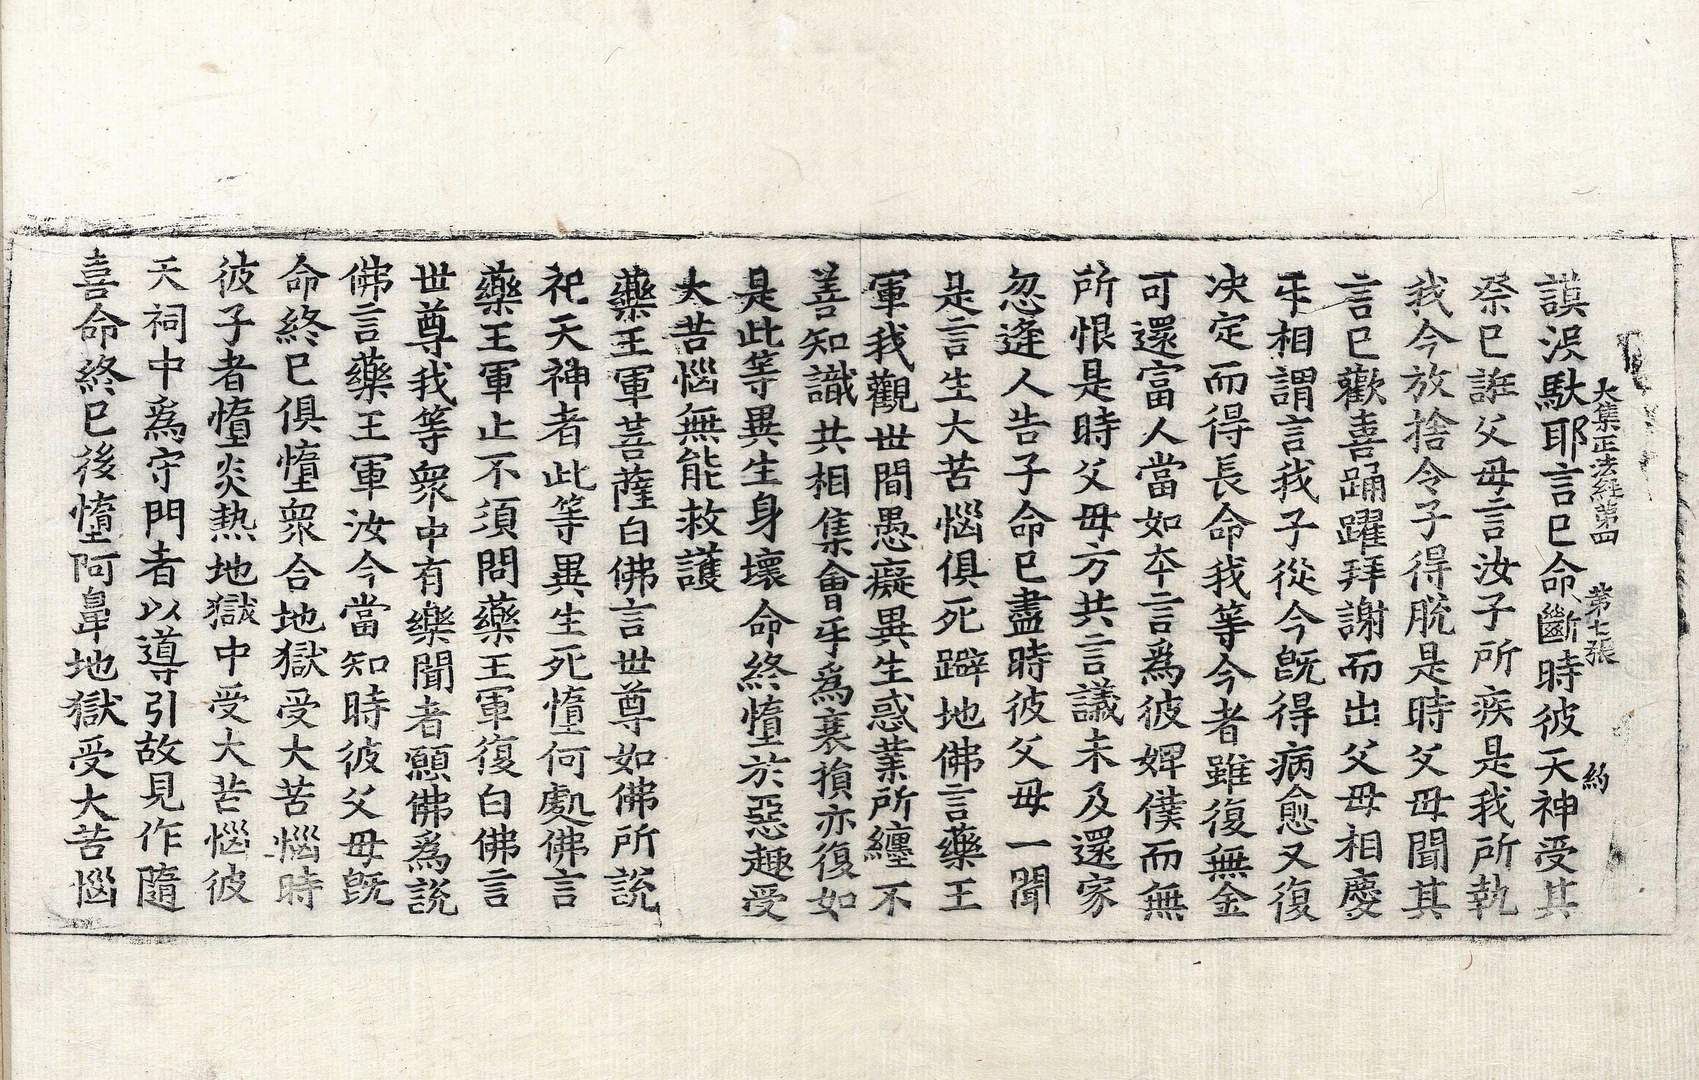 大集正法經第四　第七張　約
謨涙馱耶言已命斷時彼天神受其
祭已誑父母言汝子所疾是我所執
我今放捨令子得脫是時父母聞其
言已歡喜踊躍拜謝而出父母相慶
𭃂相謂言我子從今旣得病愈又復
决定而得長命我等今者雖復無金
可還富人當如夲言爲彼婢僕而無
所恨是時父母方共言議未及還家
忽逢人告子命已盡時彼父母一聞
是言生大苦惱俱死躃地佛言藥王
軍我觀世間愚癡異生惑業所纏不
善知識共相集會𭃂爲衰損亦復如
是此等異生身壞命終墮於惡趣受
大苦惱無能救護
藥王軍菩薩白佛言世尊如佛所說
祀天神者此等異生死墮何處佛言
藥王軍止不須問藥王軍復白佛言
世尊我等衆中有樂聞者願佛爲說
佛言藥王軍汝今當知時彼父母旣
命終已俱墮衆合地獄受大苦惱時
彼子者墮炎熱地獄中受大苦惱彼
天祠中爲守門者以導引故見作隨
喜命終已後墮阿鼻地獄受大苦惱